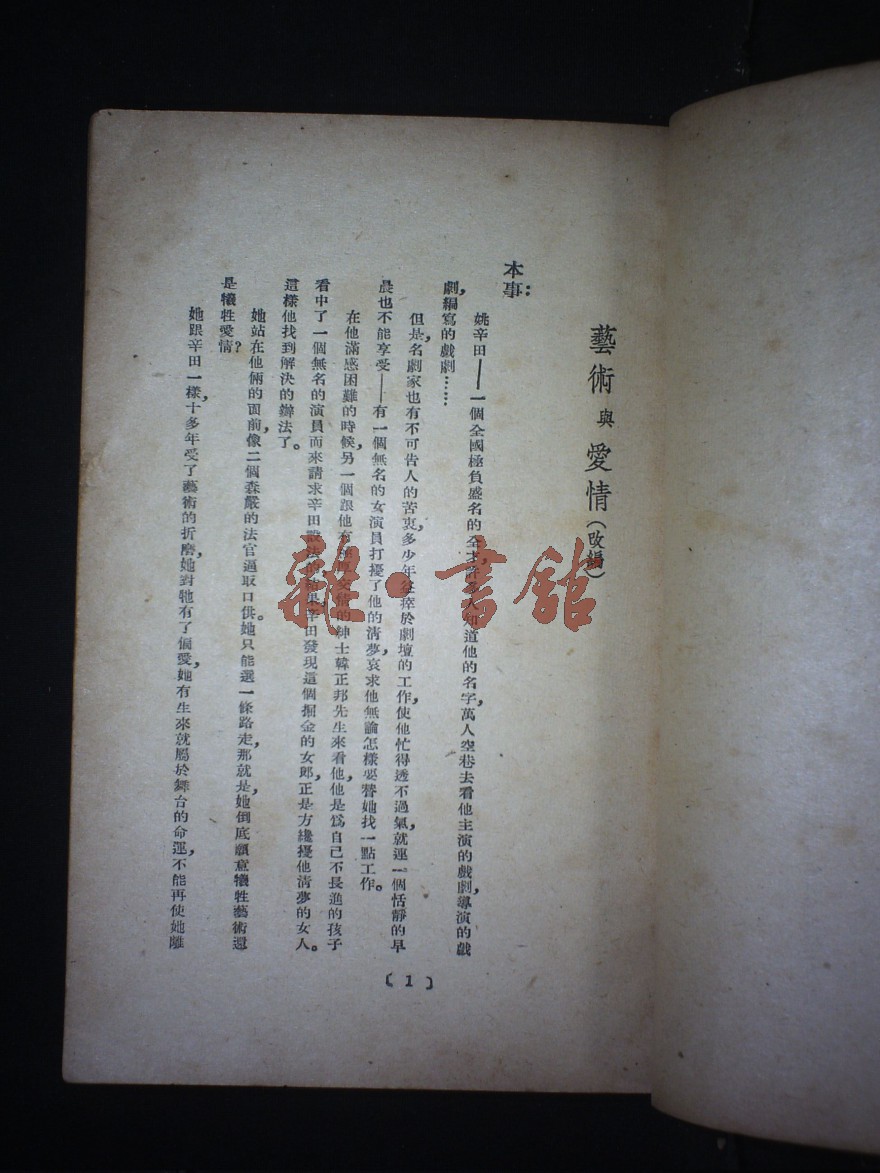 藝術與愛情（改編）
本事：
姚辛田——一個全國極負盛名的全才，許多人知道他的名字，萬人空巷去看他主演的戲劇，導演的戲
劇，編寫的戲劇……
但是，名劇家也有不可告人的苦衷，多少年盡瘁於劇壇的工作，使他忙得透不過氣，就連一個恬靜的早
晨也不能享受——有一個無名的女演員打擾了他的清夢，哀求他無論怎樣要替她找一點工作。
在他滿感困難的時候，另一個跟他有交情的紳士韓正邦先生來看他，他是為自己不長進的孩子
看中了一個無名的演員而來請求辛田設法的，結果辛田發現這個掘金的女郎，正是方纔擾他清夢的女人。
這樣他找到解決的辦法了。
她站在他倆的面前，像二個森嚴的法官逼取口供。她只能選一條路走，那就是，她倒底願意犧牲藝術還
是犧牲愛情？
她跟辛田一樣，十多年受了藝術的折磨，她對牠有了偏愛，她有生來就屬於舞台的命運，不能再使她離
〔1〕
雜·書館